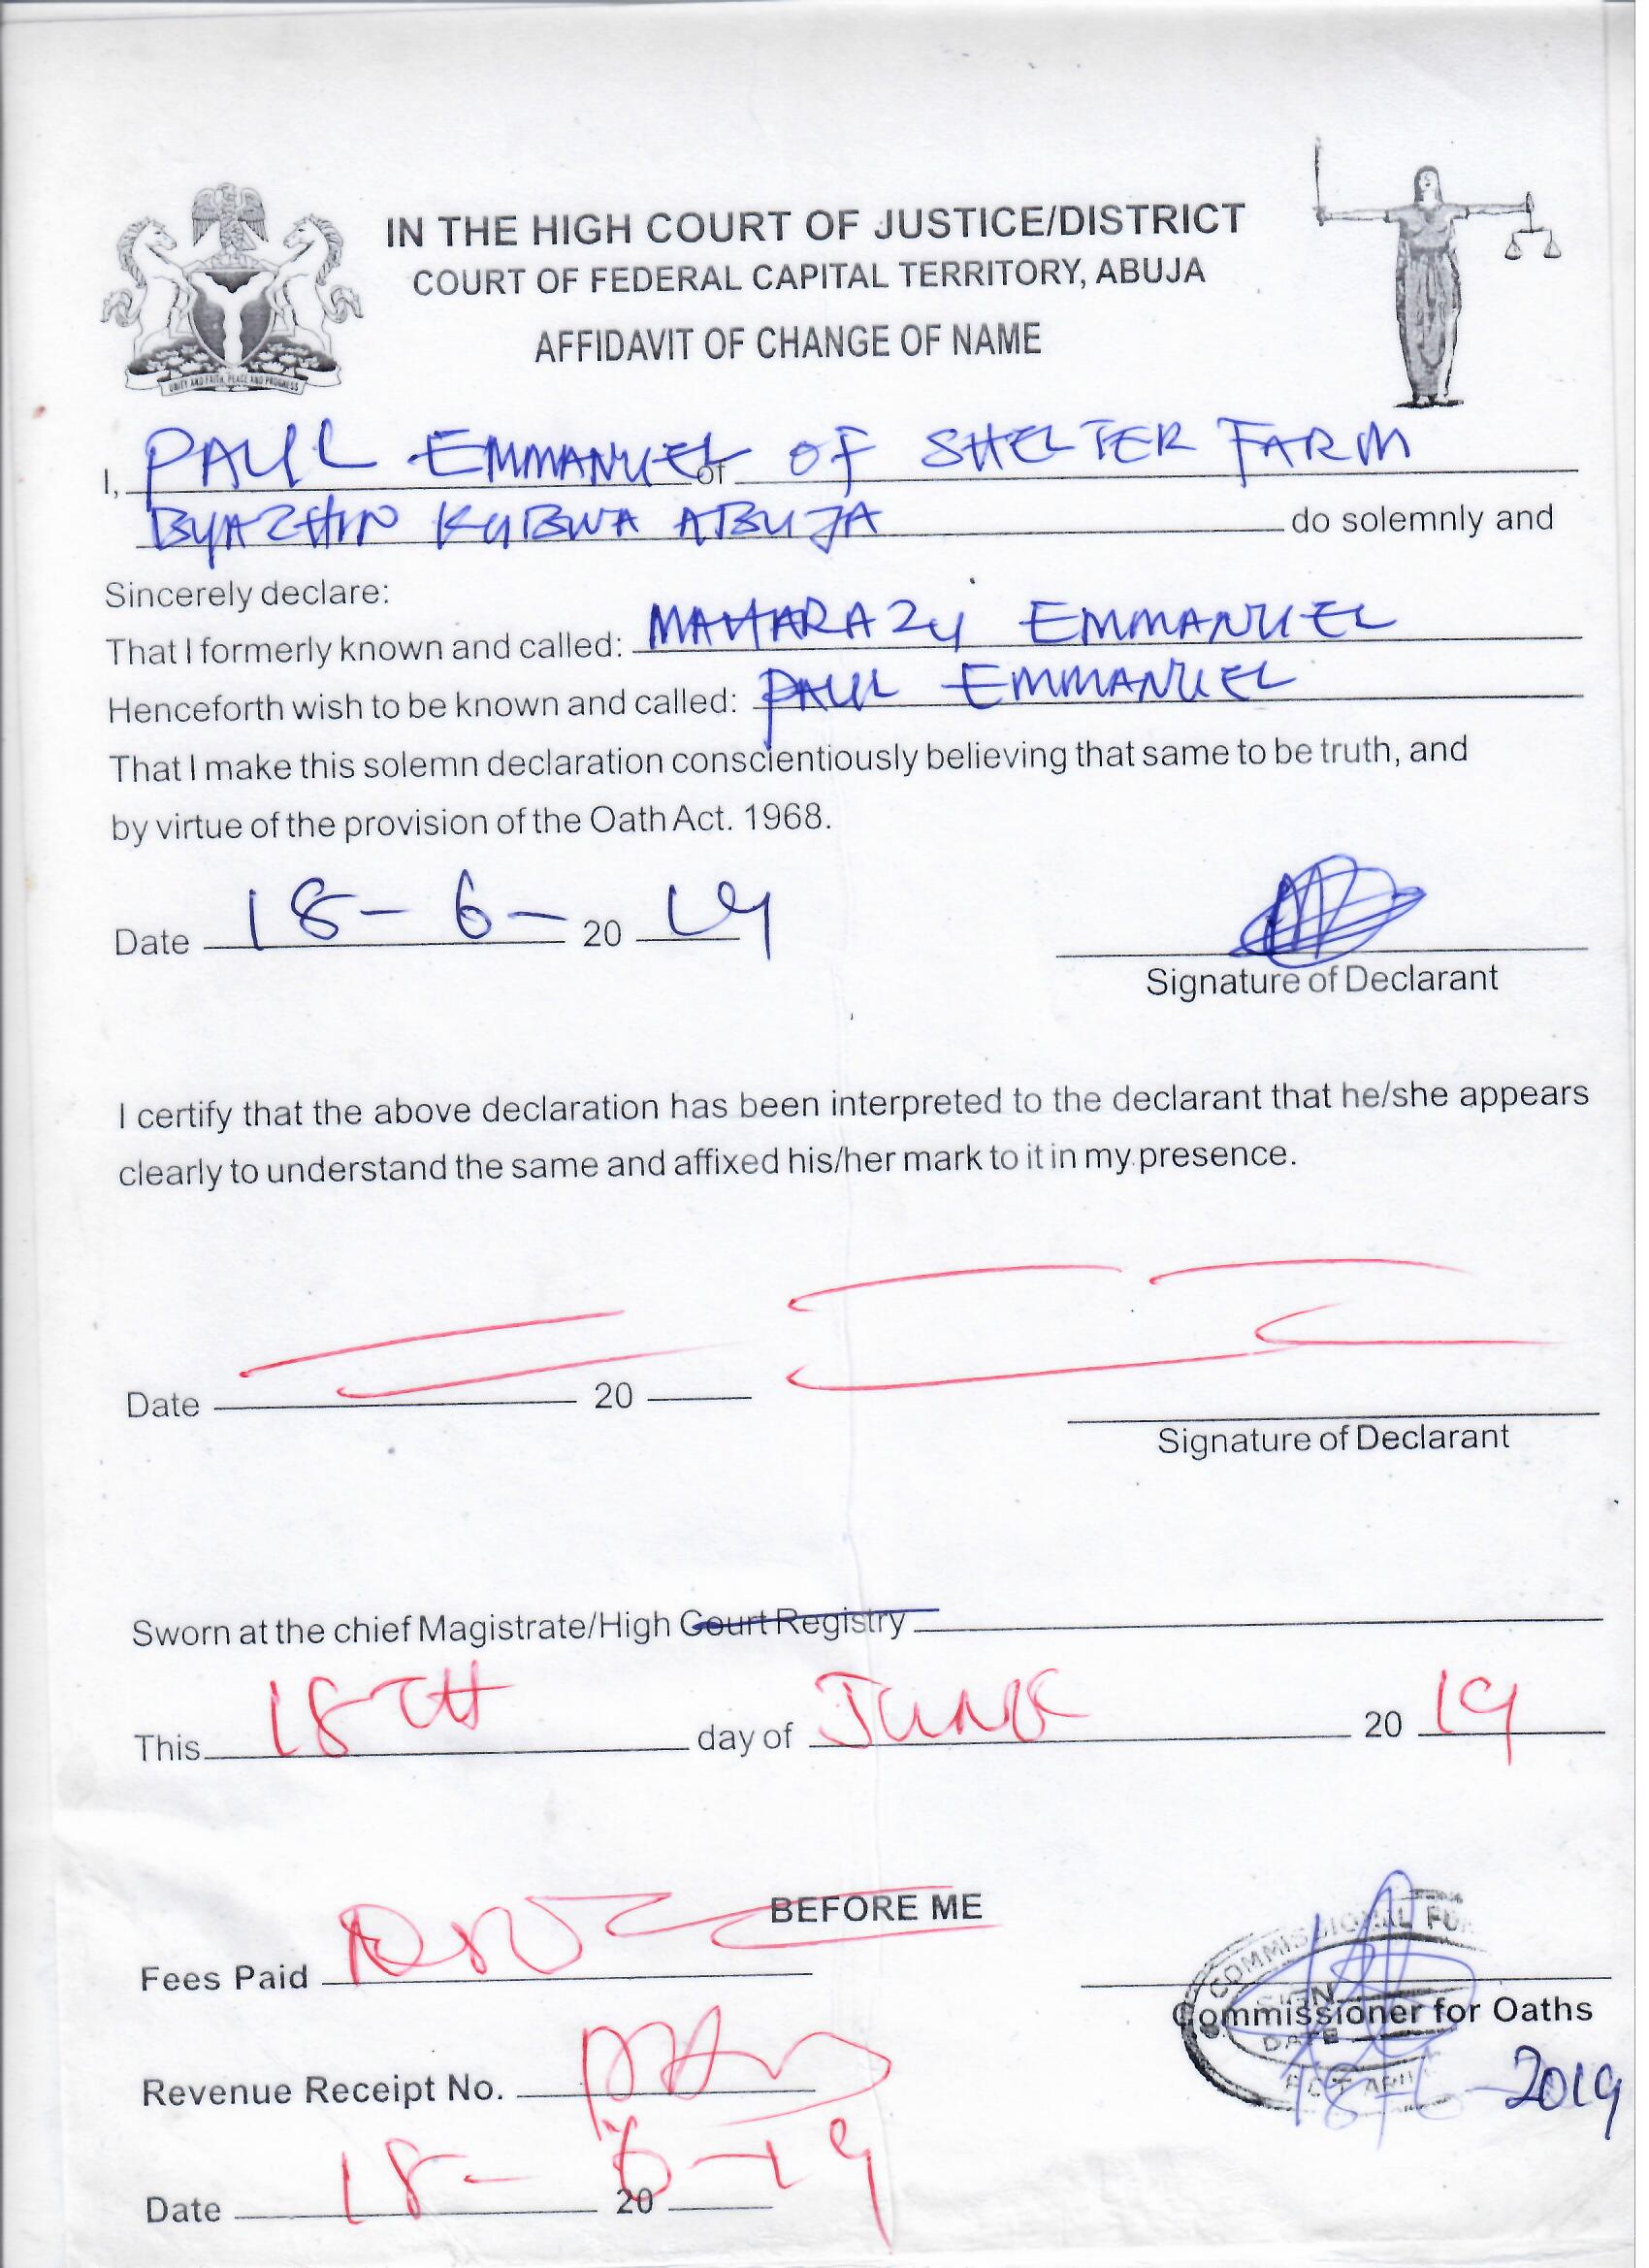 IN THE HIGH COURT OF JUSTICE/DISTRICT
COURT OF FEDERAL CAPITAL TERRITORY, ABUJA
AFFIDAVIT OF CHANGE OF NAME
UNITY AND FAITH, PEACE AND PROGRESS
I, PAUL EMMANUEL of OF SHELTER FARM
BYAZHIN KUBWA ABUJA do solemnly and
Sincerely declare:
That I formerly known and called: MAHARAZU EMMANUEL
Henceforth wish to be known and called: PAUL EMMANUEL
That I make this solemn declaration conscientiously believing that same to be truth, and
by virtue of the provision of the Oath Act. 1968.
Date 18-6- 20 19
Signature of Declarant
I certify that the above declaration has been interpreted to the declarant that he/she appears
clearly to understand the same and affixed his/her mark to it in my presence.
Date 20
Signature of Declarant
Sworn at the chief Magistrate/High Court Registry
This 18TH day of JUNE 20 19
BEFORE ME
Fees Paid
COMMISSIONAL FOR
SIGN
Commissioner for Oaths
DATE
Revenue Receipt No.
FCT
18/6 2019
Date 18-6-19 20